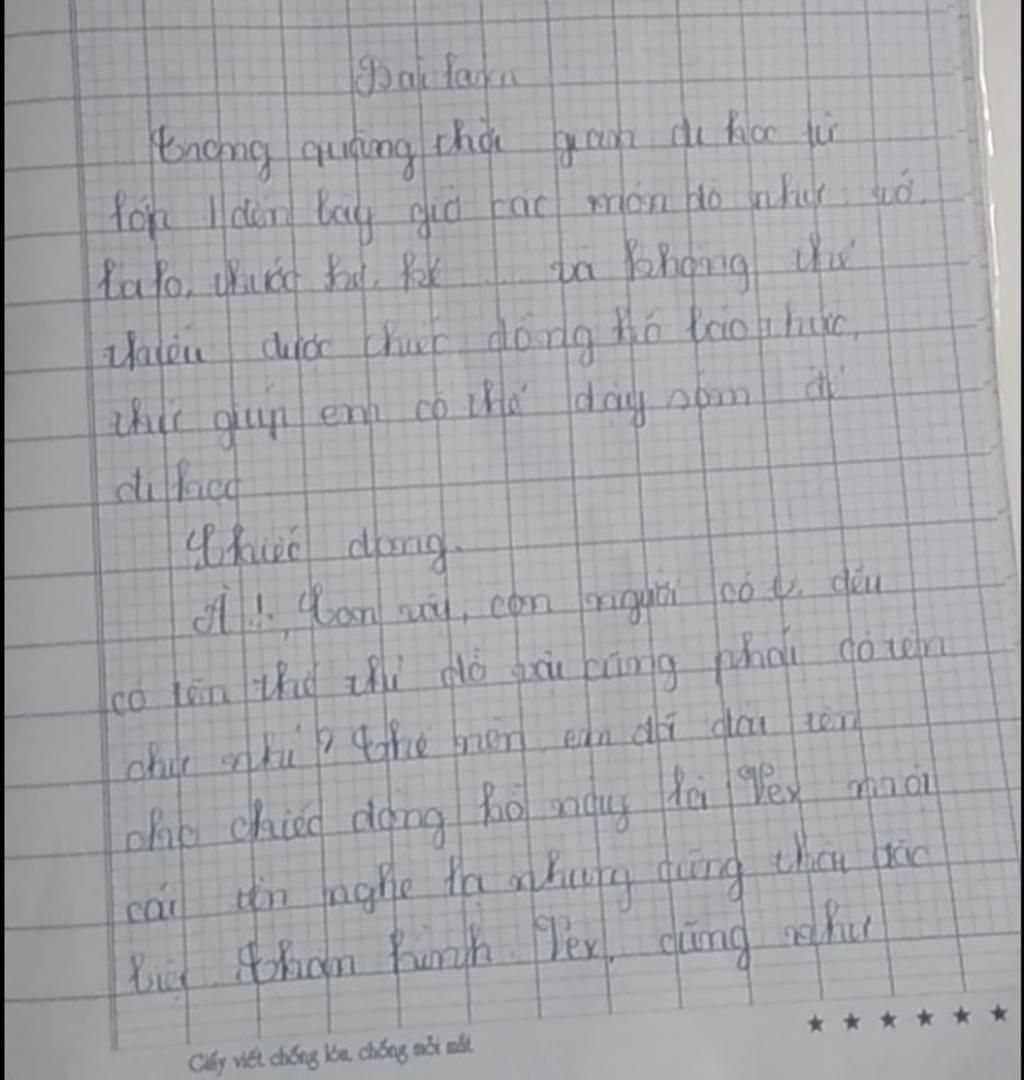 Bài làm
trong quãng thời gian đi học từ
lớp 1 đến bây giờ các món đồ như vở
balo, thước kẻ, ... và không thể
thiếu được chiếc đồng hồ báo thức,
thứ giúp em có thể dậy sớm để
đi học
Chiếc đồng.
À!, con vậy, con người có đều
có tên thế thì đồ vật cũng phải có tên
chứ nhỉ? thế nên em đã đặt tên
cho chiếc đồng hồ này là Vex
cái tên nghe lạ nhưng đừng
Thân hình Vex, dùng như
Giấy viết chống lóa, chống mỏi mắt